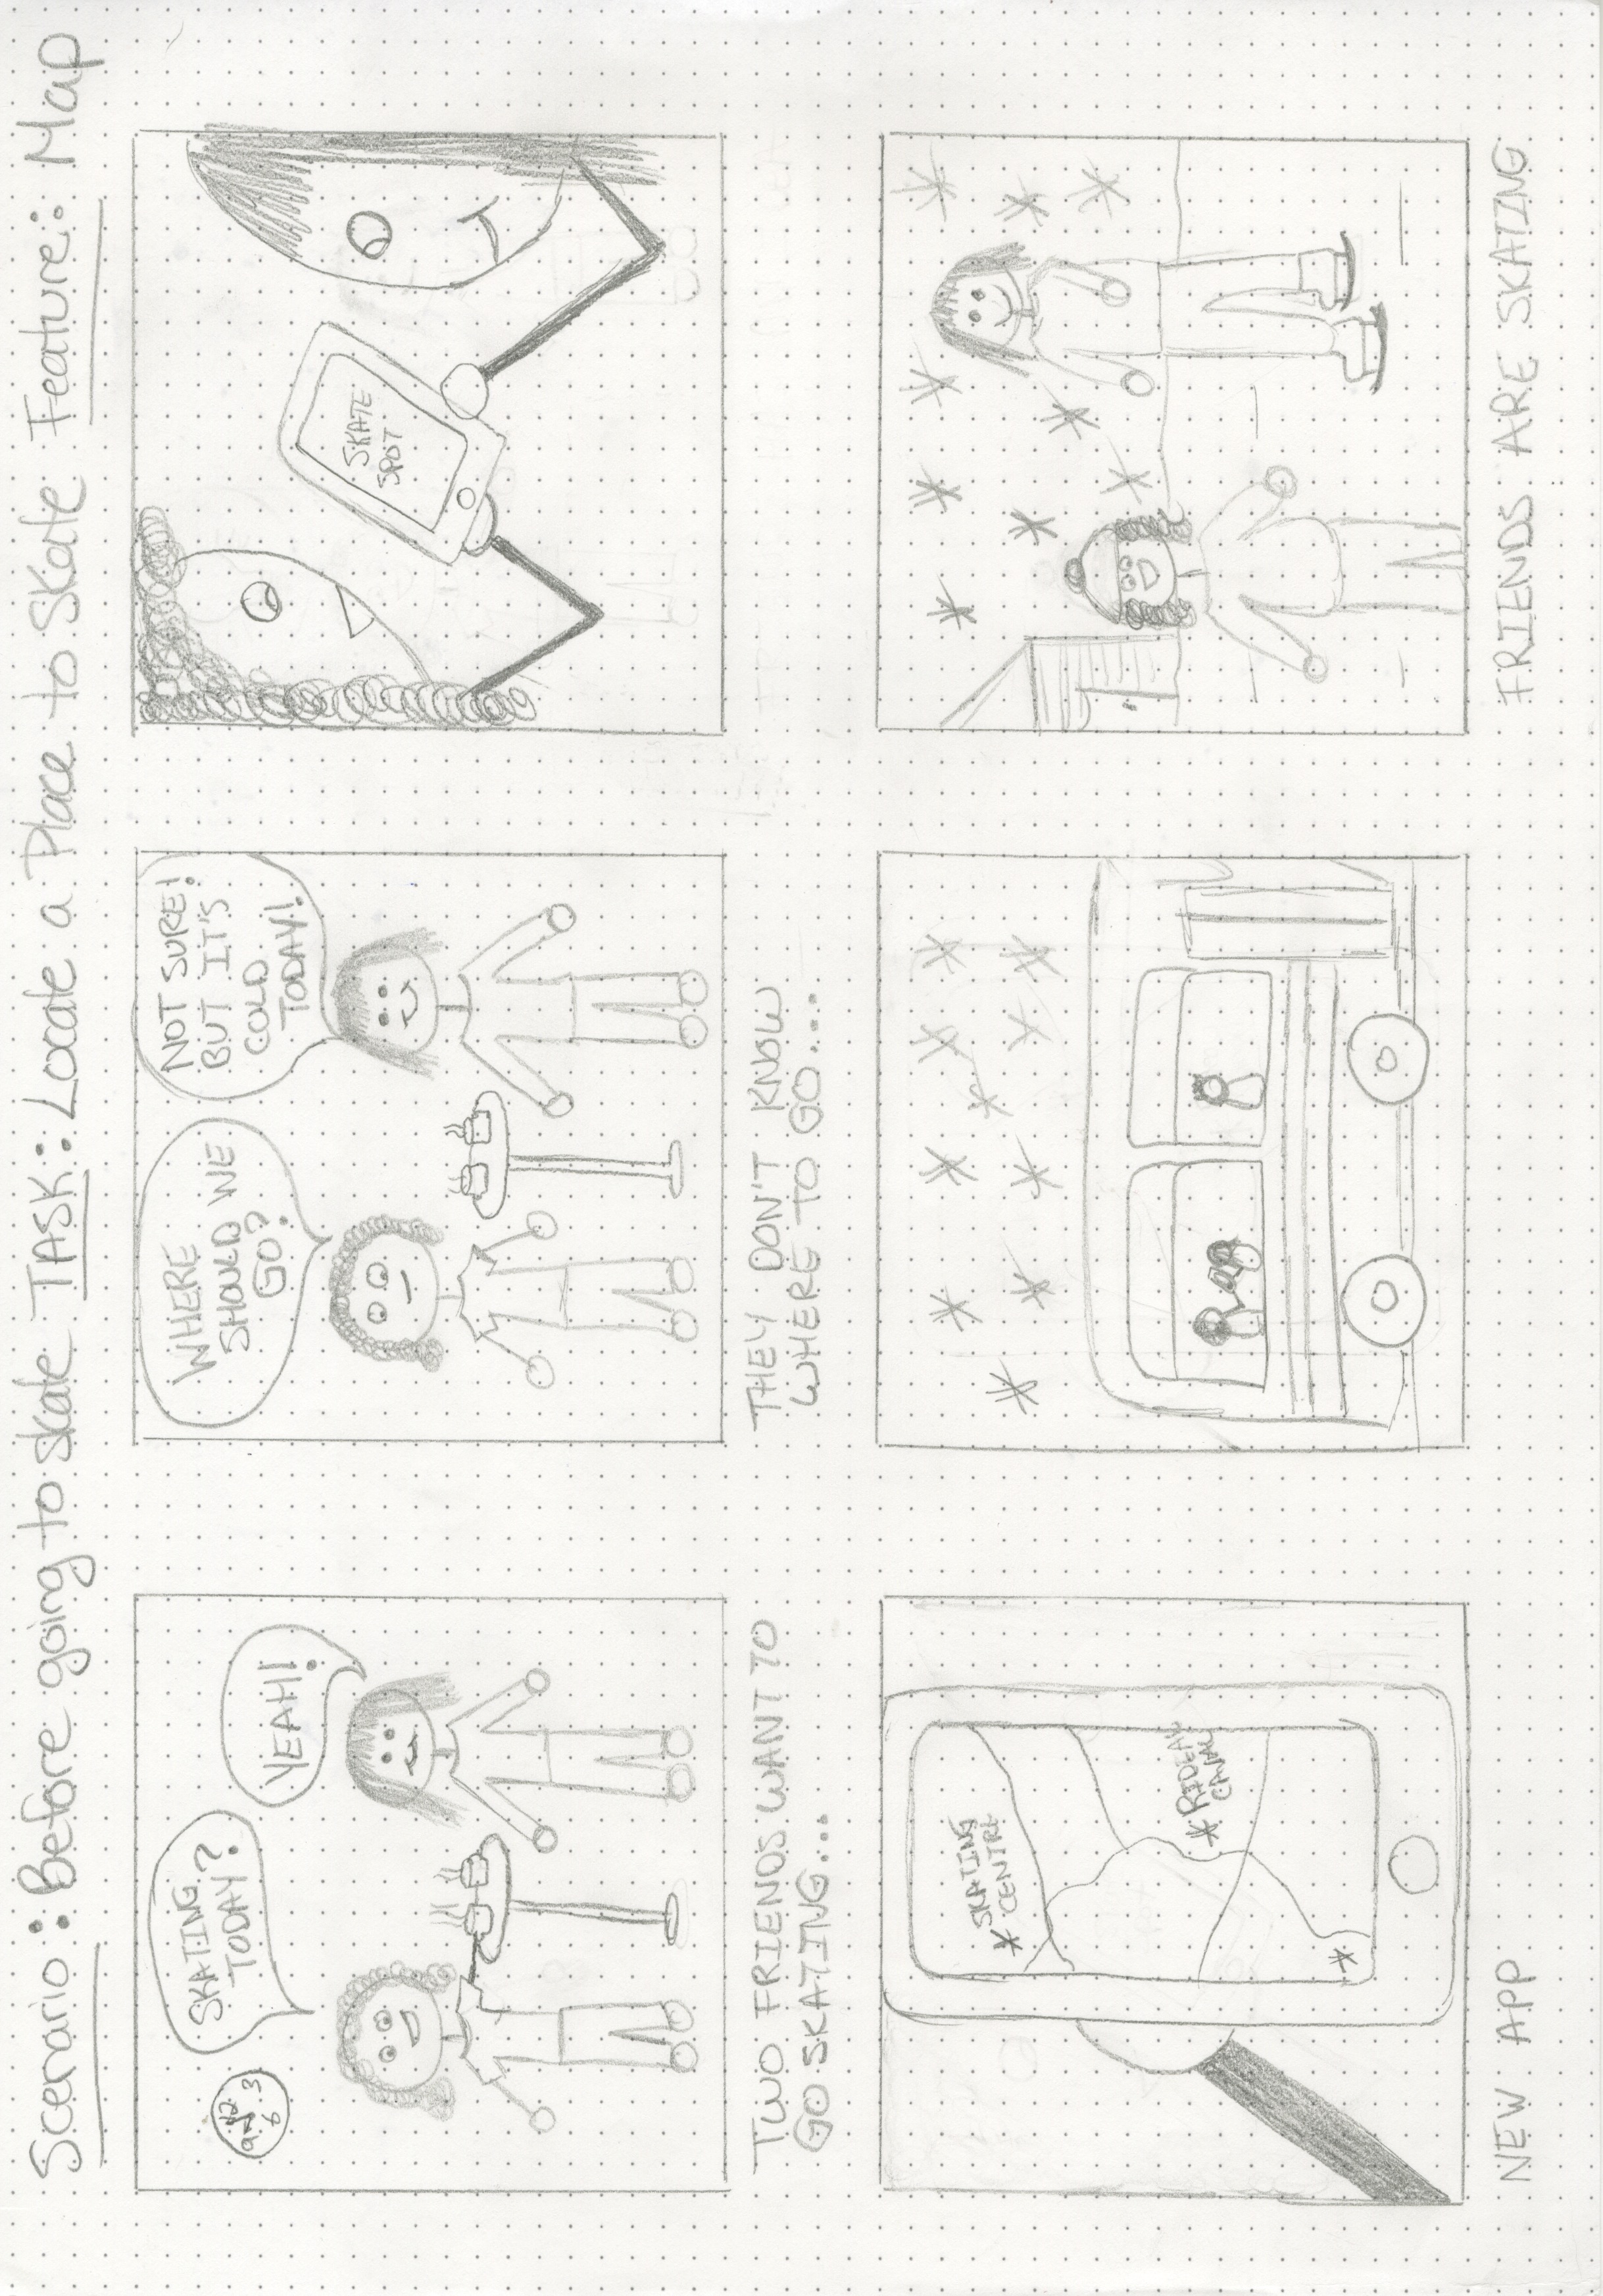 Scenario: Before going to skate TASK: Locate a Place to Skate Feature: Map
SKATING
TODAY?
YEAH!
12
9 3
6
TWO FRIENDS WANT TO
GO SKATING...
WHERE
SHOULD WE
GO?
NOT SURE!
BUT IT'S
COLD
TODAY!
THEY DON'T KNOW
WHERE TO GO...
SKATE
SPOT
* SKATING
CENTRE
* RIDEAU
CANAL
*
NEW APP
FRIENDS ARE SKATING